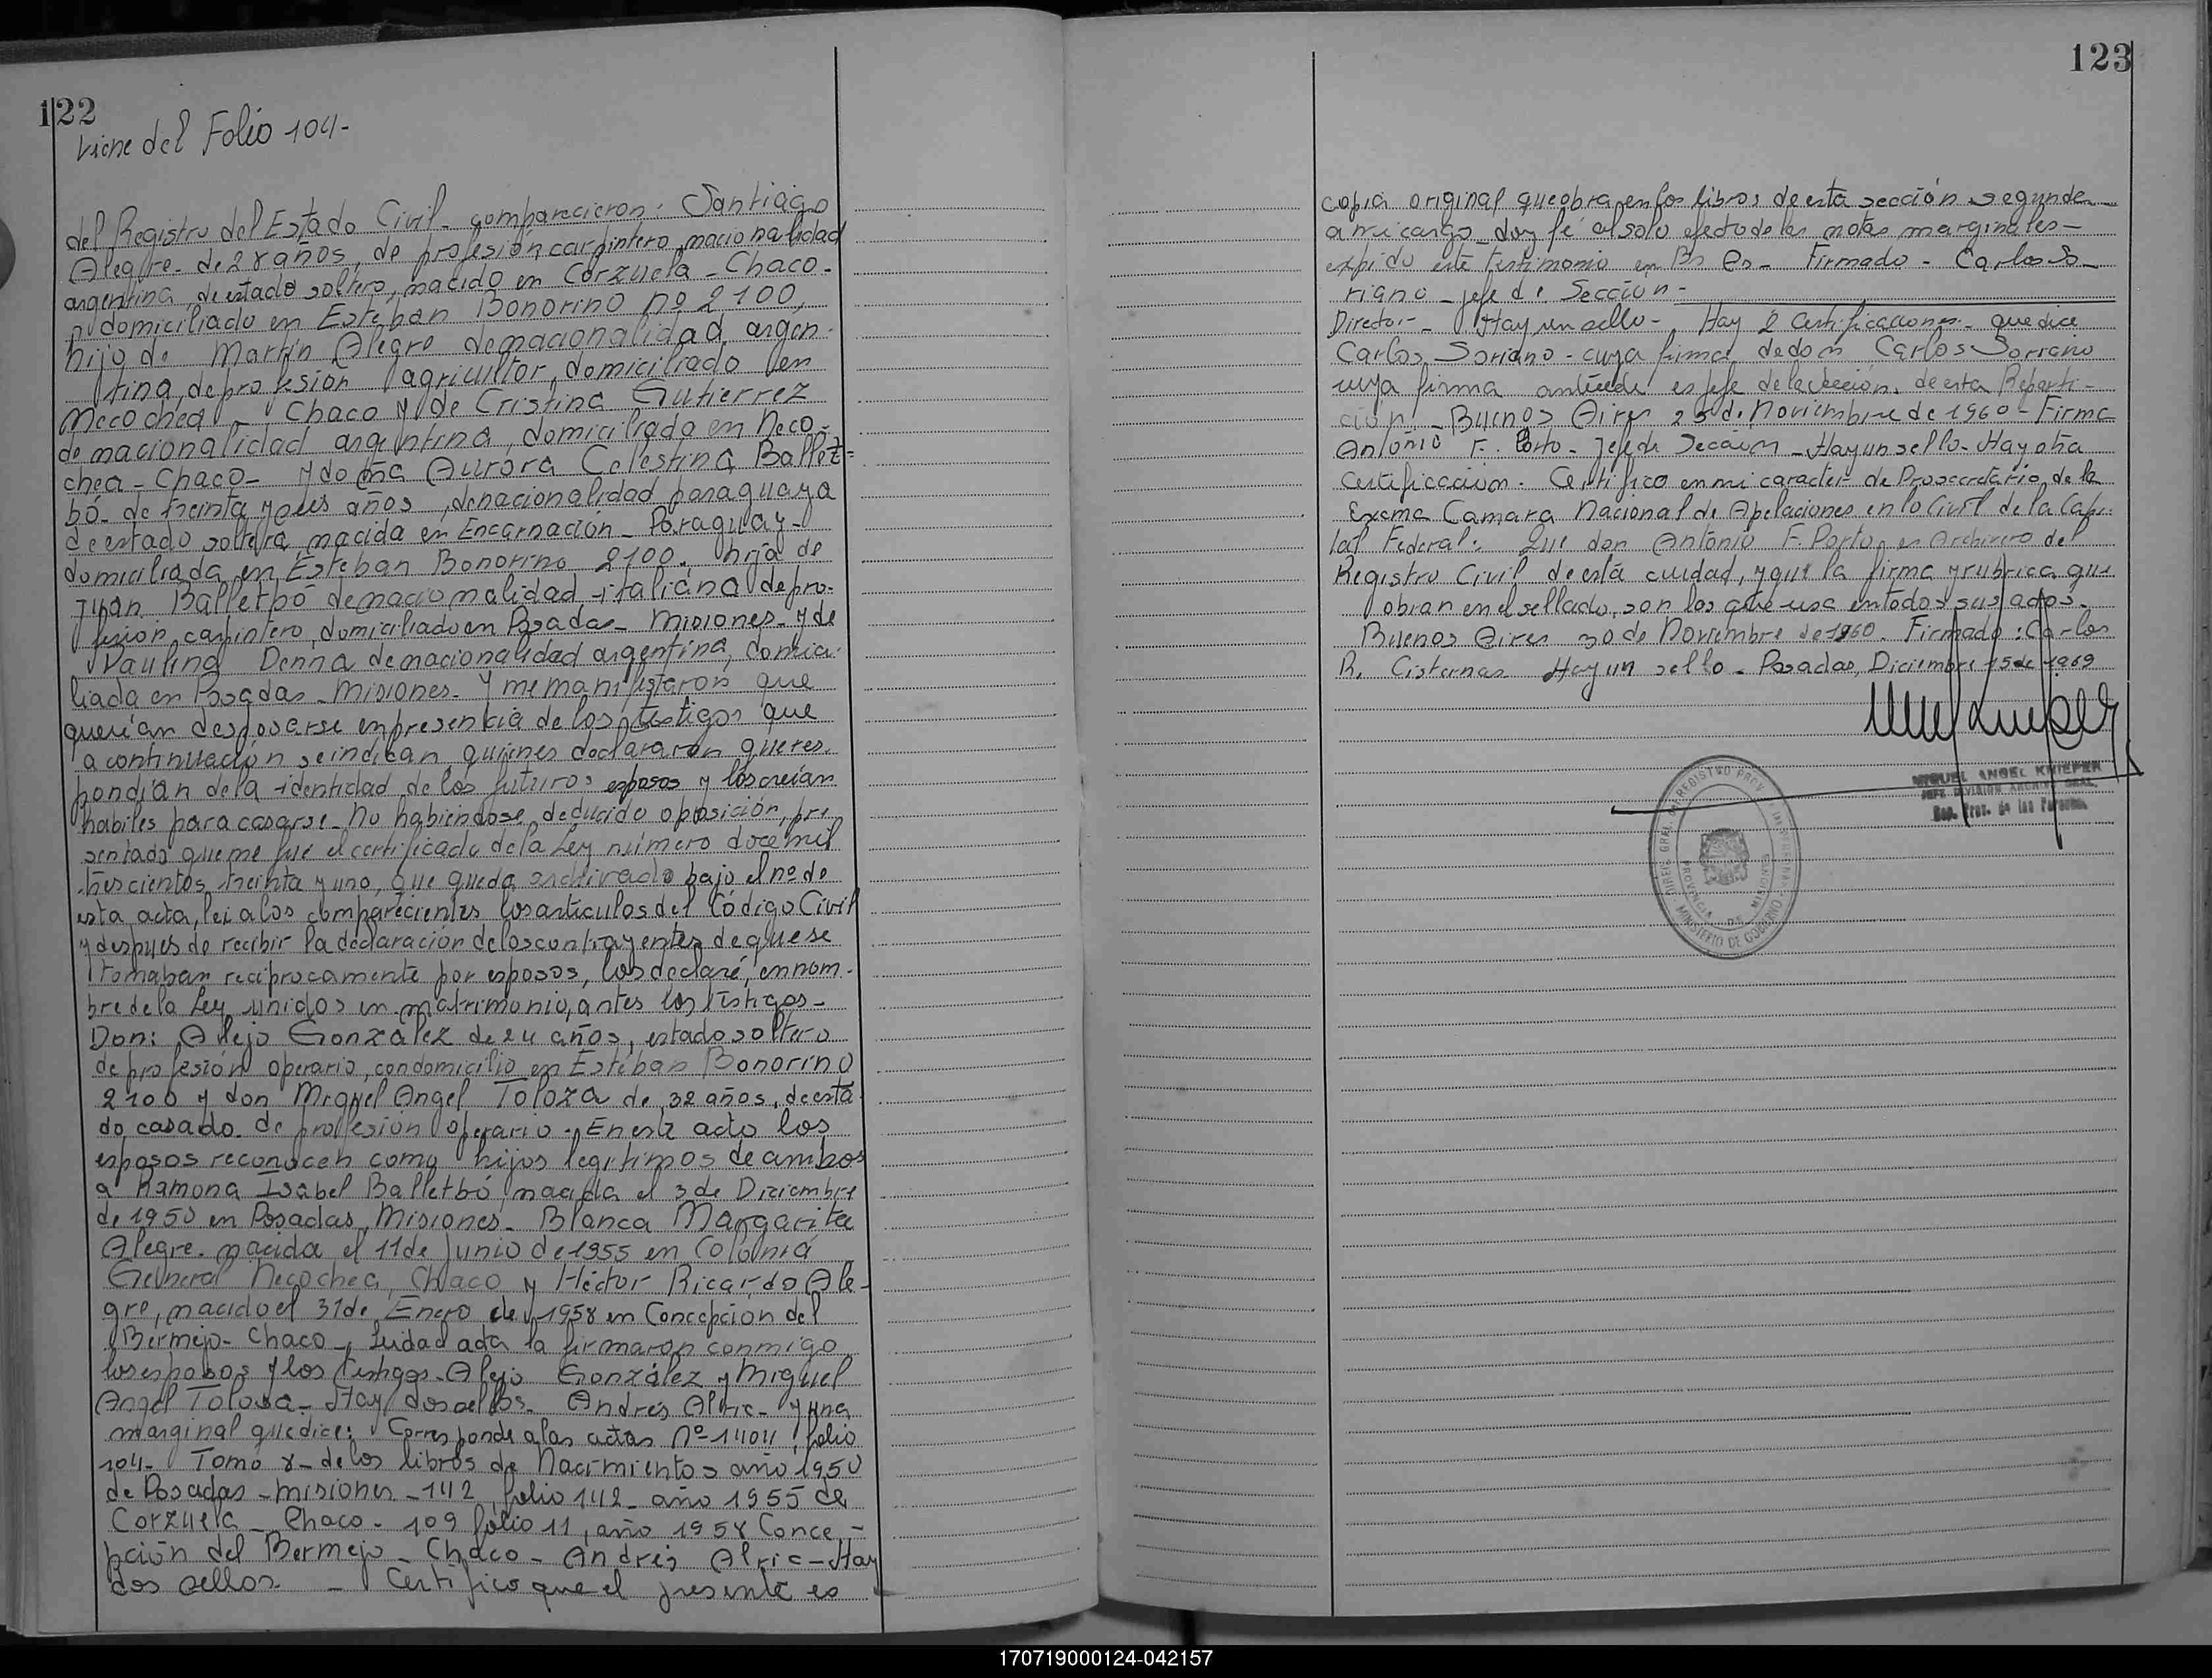 122
Viene del Folio 104-
del Registro del Estado Civil - comparecieron: Santiago
Alegre - de 28 años, de profesión carpintero, nacionalidad
argentina, de estado soltero, nacido en Corzuela - Chaco -
domiciliado en Esteban Bonorino nº 2100,
hijo de Martín Alegre de nacionalidad argen-
tina, de profesión agricultor, domiciliado en
Necochea - Chaco y de Cristina Gutierrez
de nacionalidad argentina, domiciliada en Neco-
chea - Chaco - y doña Aurora Celestina Ballet-
bó - de treinta y años, de nacionalidad paraguaya
de estado soltera, nacida en Encarnación - Paraguay -
domiciliada en Esteban Bonorino 2100, hija de
Juan Balletbó de nacionalidad italiana de pro-
fesión carpintero, domiciliado en Posadas - Misiones - y de
Paulina Denna de nacionalidad argentina, domici-
liada en Posadas - Misiones - y me manifestaron que
querían desposarse en presencia de los testigos que
a continuación se indican, quienes declararon que res-
pondían de la identidad de los futuros esposos y los creían
habiles para casarse - No habiendose deducido oposición, pre-
sentado que me fue el certificado de la Ley número doce mil
trescientos treinta y uno, que queda archivado bajo el nº de
esta acta, lei a los comparecientes los artículos del Código Civil
y despues de recibir la declaración de los contrayentes de que se
tomaban reciprocamente por esposos, los declaré, en nom-
bre de la Ley unidos en matrimonio, antes los testigos -
Don: Alejo González de 24 años, estado soltero
de profesión operario, con domicilio en Esteban Bonorino
2100 y don Miguel Angel Toloza de 32 años, de esta-
do casado de profesión operario. En este acto los
esposos reconocen como hijos legitimos de ambos
a Ramona Isabel Balletbó, nacida el 3 de Diciembre
de 1950 en Posadas, Misiones - Blanca Margarita
Alegre - nacida el 11 de Junio de 1955 en Colonia
General Necochea, Chaco y Héctor Ricardo Ale-
gre, nacido el 31 de Enero de 1958 en Concepcion del
Bermejo - Chaco - Leida el acta la firmaron conmigo
los esposos y los testigos - Alejo González y Miguel
Angel Tolosa - Hay dos sellos - Andres Alric - y una
marginal que dice: Corresponde a las actas Nº 1404, folio
104 - Tomo 8 - de los libros de Nacimientos año 1950
de Posadas - Misiones - 142 folio 142 - año 1955 de
Corzuela - Chaco - 109 folio 11, año 1958 Conce-
pción del Bermejo - Chaco - Andrés Alric - Hay
dos sellos - Certifico que el presente es
123
copia original que obra en los libros de esta sección segunda
a mi cargo - doy fé al solo efecto de las notas marginales -
expido este testimonio en Bs As - Firmado - Carlos So-
riano - jefe de Sección -
Director - Hay un sello - Hay 2 certificaciones - que dice
Carlos Soriano - cuya firma de don Carlos Sorriano
cuya firma antecede es jefe de la sección, de esta Reparti-
ción - Buenos Aires 25 de Noviembre de 1960 - Firma
Antonio F. Porto - Jefe de Sección - Hay un sello - Hay otra
Certificación. Certifico en mi caracter de Prosecretario, de la
Exema Camara Nacional de Apelaciones en lo Civil de la Capi-
tal Federal: Que don Antonio F. Porto, es Archivero del
Registro Civil de está cuidad, y que la firma y rubrica que
obran en el sellado, son las que usa en todos sus actos.
Buenos Aires 30 de Noviembre de 1960. Firmado: Carlos
R. Cisternas Hay un sello - Posadas, Diciembre 15 de 1969
MIGUEL ANGEL KNIEPER
JEFE DIVISION ARCHIVO GRAL.
Reg. Prov. de las Personas
MINISTERIO DE GOBIERNO
PROVINCIA DE MISIONES
170719000124-042157